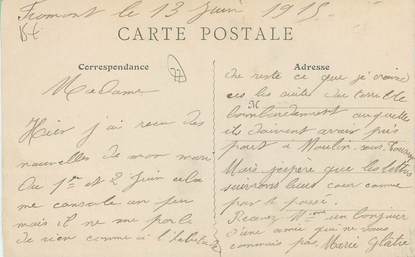 Fromont le 13 Juin 1915
CARTE POSTALE
Correspondance
Madame
Hier j'ai recu des
nouvelles de mon mari
Du 1er et 2 Juin cela
me console un peu
mais il ne me parle
de rien comme à l'
Adresse
du reste ce que je
ces les suites du terrible
M
bombardement auquelles
ils doivent avoir pris
part à Moulin sous Touvent
Mais j'espere que les lettres
suivrons leur cour comme
par le passé.
Recevez Mme un bonjour
d'une amie qui ne vous
connais pas Marie